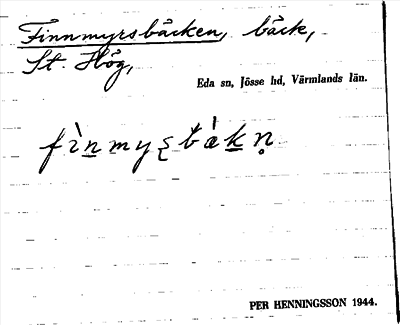 Finnmyrsbäcken, bäck,
St. Hög,
Eda sn, Jösse hd, Värmlands län.
fìn̲myʂbá̈k̲n̥
PER HENNINGSSON 1944.